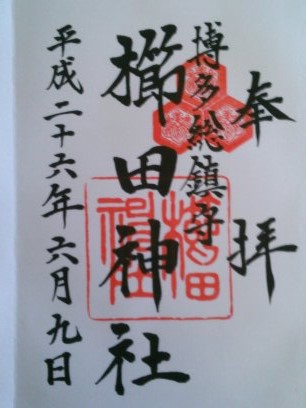 奉拝
博多総鎮守
櫛田神社
平成二十六年六月九日
櫛田神社